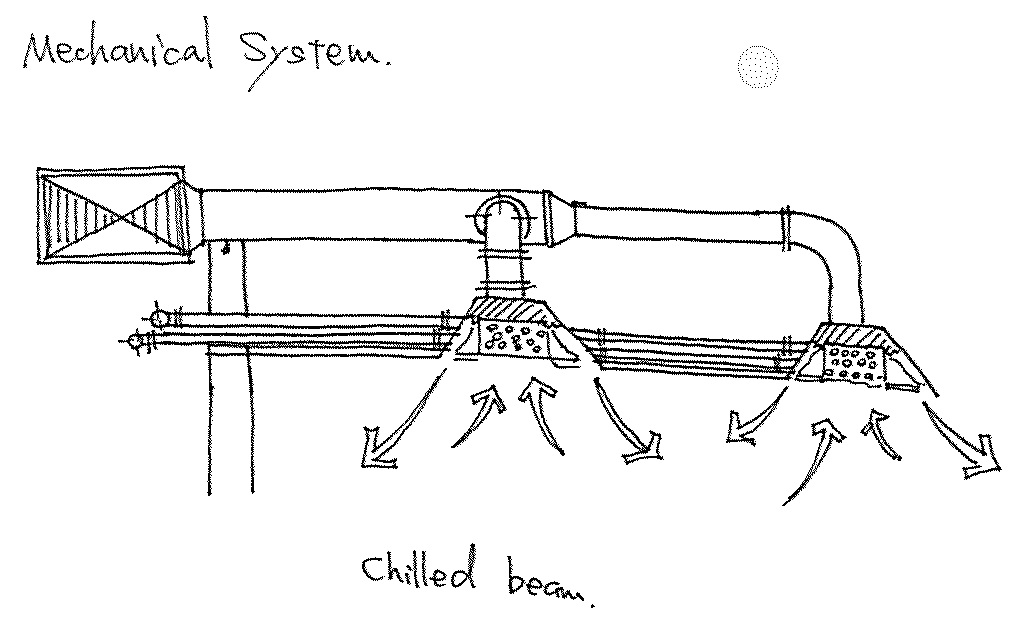 Mechanical System.
Chilled beam.